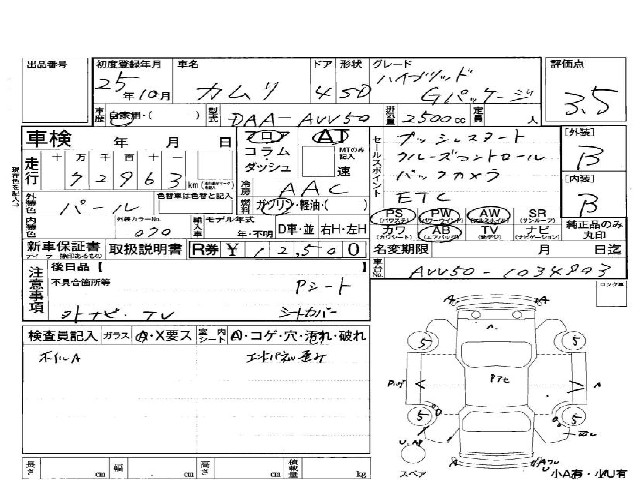 出品番号
初度登録年月 車名 ドア 形状 グレード 評価点
25年10月 カムリ 4 SD ハイブリッド Gパッケージ 3.5
車歴 自家用・( ) 型式 DAA-AVV50 排気量 2500cc 定員 人
車検 年 月 日
フロア AT
コラム・ダッシュ MTのみ記入 速
走行 十 万 千 百 十 一
72963 km
冷房 AAC
燃料 ガソリン・軽油・( )
セールスポイント
プッシュスタート
クルーズコントロール
バックカメラ
ETC
[外装] B
[内装] B
外装色 パール 色替車は色替と記入
内装色 外装カラーNo. 070
輸入車 モデル年式 年・不明 D車・並 右H・左H
PS PW AW SR
カワ AB TV ナビ
純正品のみ丸印
新車保証書 取扱説明書 R券 ¥12,500
名変期限 月 日迄
車台No. AVV50-1034803
注意事項
後日品 [ ]
不具合箇所等
Pシート
外ナビ・TV シートカバー
検査員記入 ガラス A・X要ス 室内シート A・コゲ・穴・汚れ・破れ
ホイルA
長さ cm 幅 cm 高さ cm 最大積載量 kg
スペア
小A有・小U有